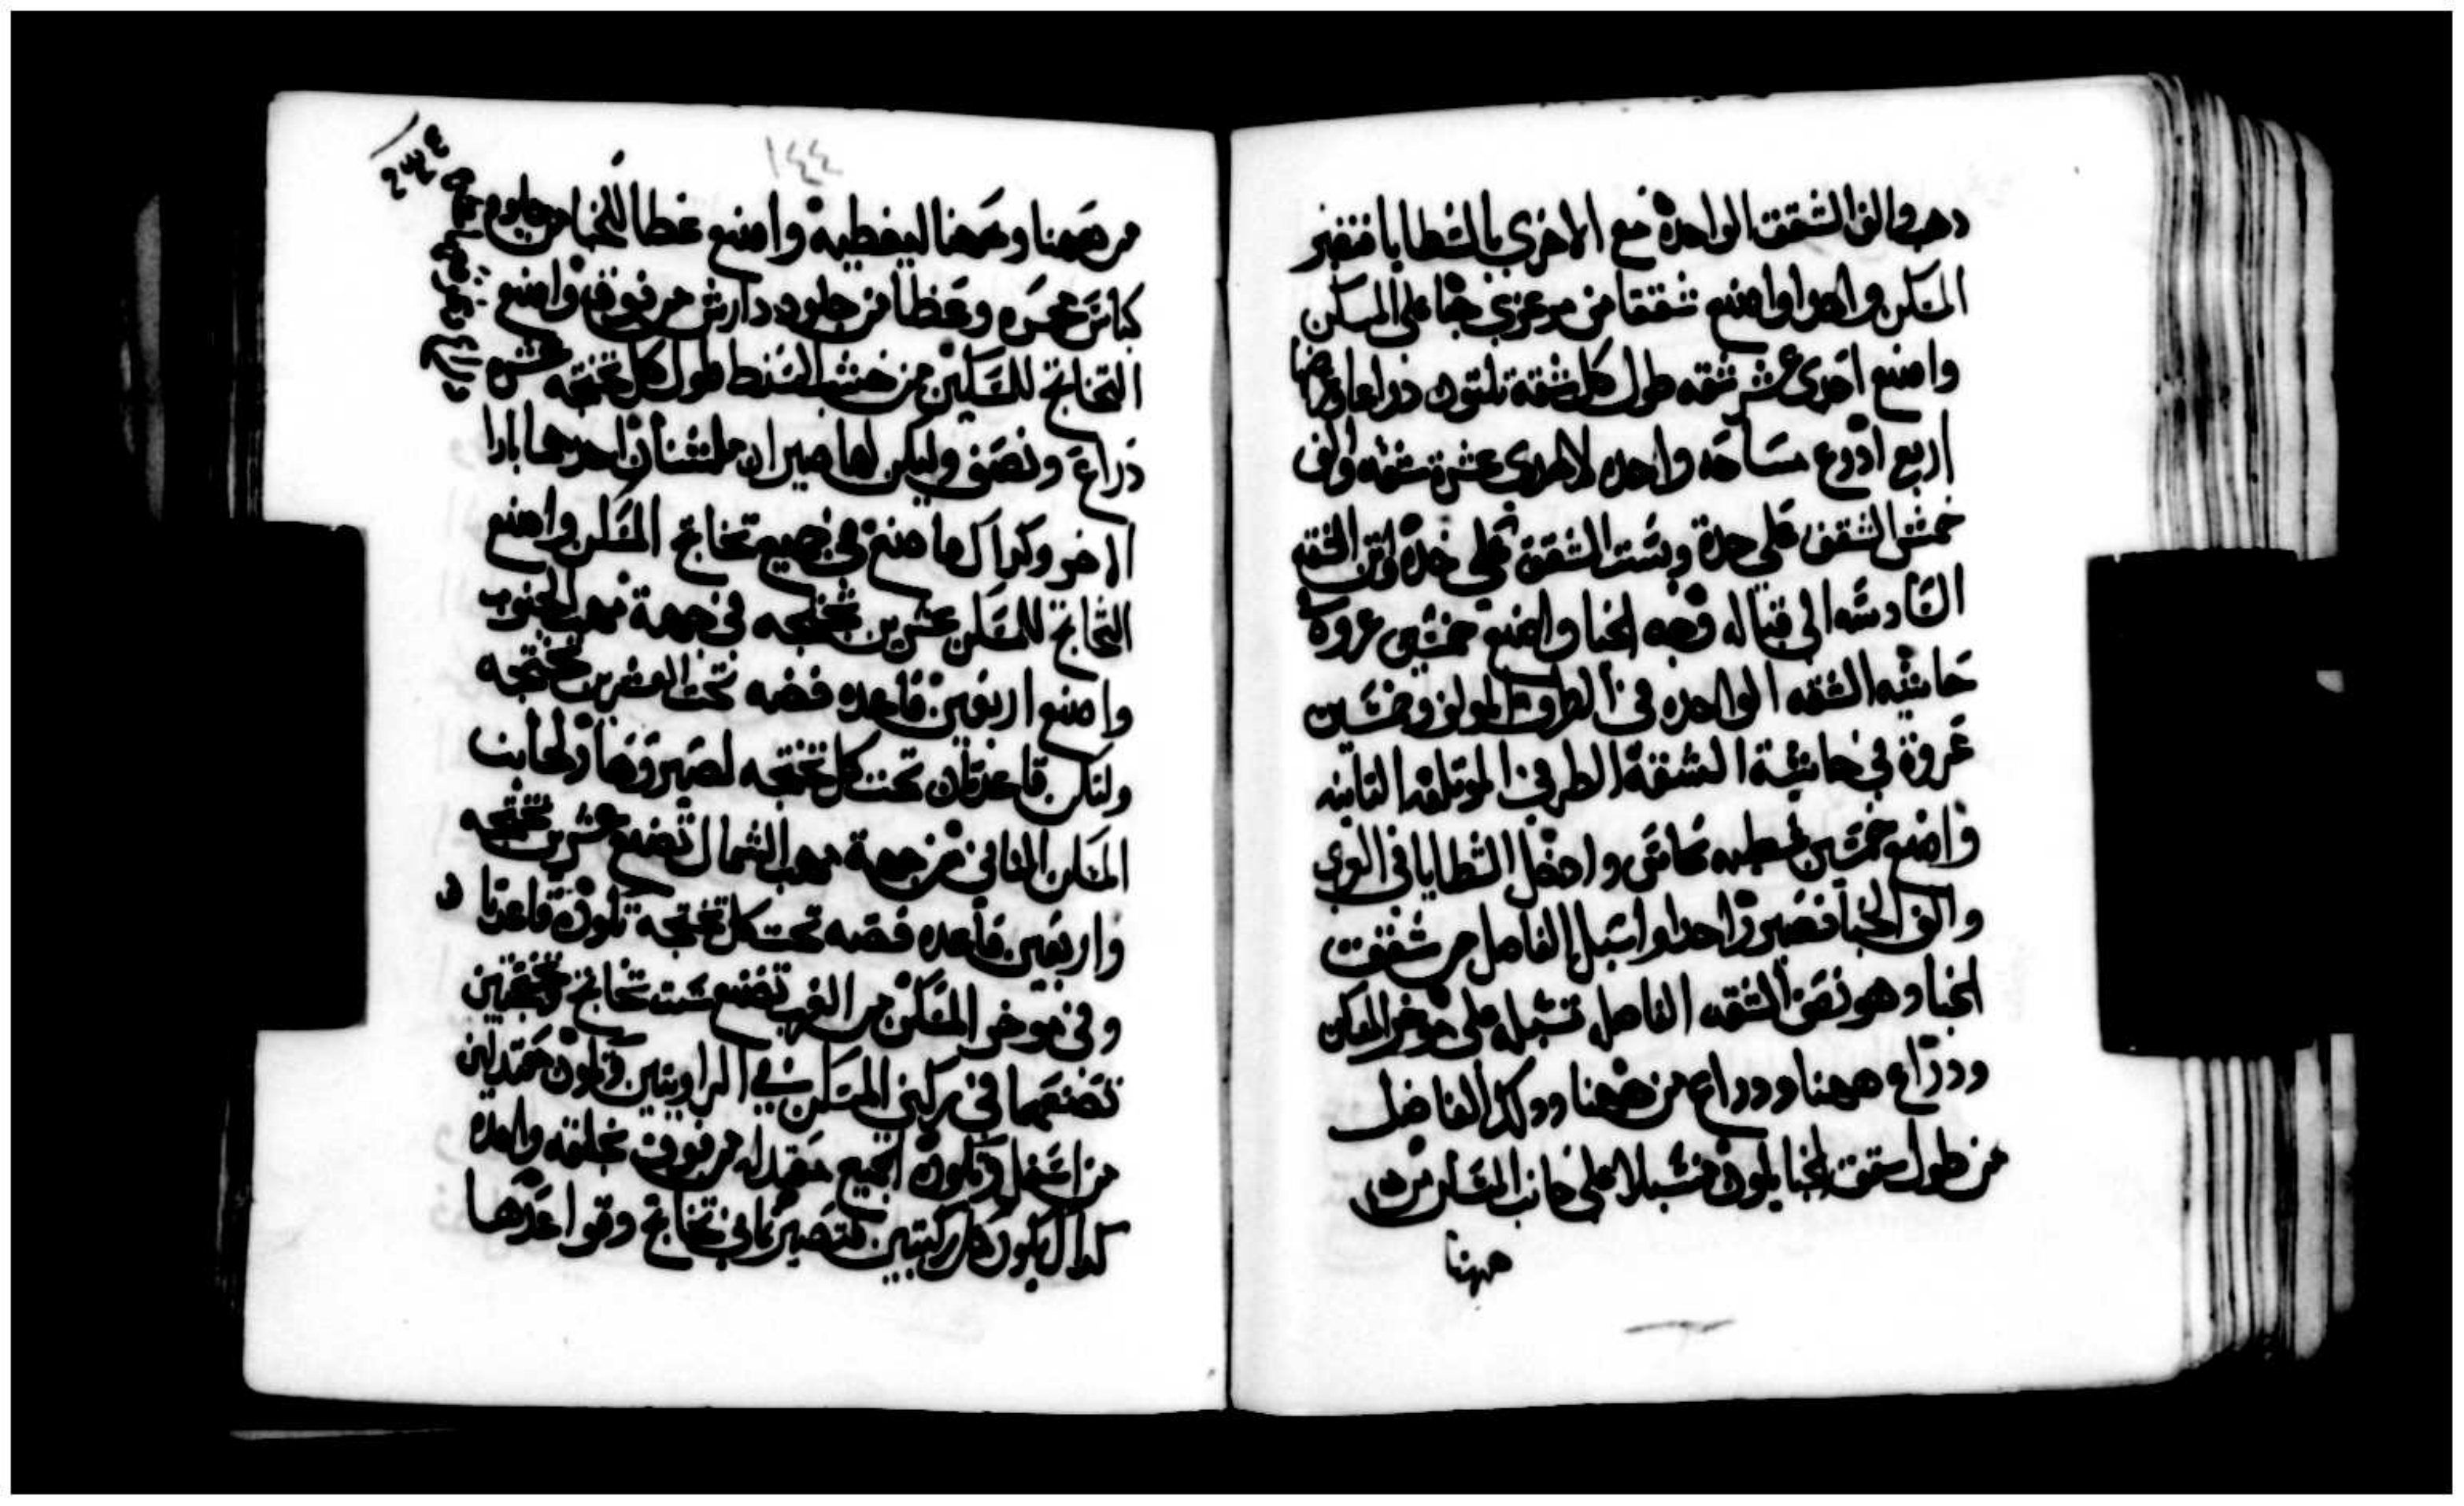 دهب والف الشقق الواحدة مع الاخرى بالشظايا فتصير
المسكن واحدا واصنع شققا من مرعزي خبا على المسكن
واصنع احدى عشر شقه طول كل شقة ثلثون ذراعا وعرضها
اربع اذرع مساحه واحده لاحدى عشرة شقه والف
خمس الشقق على حدة وست الشقق على حدة واثن الشقه
السادسه الى قباله وجه الخبا واصنع خمسين عروة في
حاشيه الشقه الواحده في الطرف المولف وخمسين
عروة في حاشية الشقة الطرف الموتلفه الثانيه
واصنع خمسين شظيه نحاس وادخل الشظايا في العرى
والف الخبا فيصير واحدا واسبل الفاضل من شقق
الخبا وهو نصف الشقه الفاضل تسبله على موخر المسكن
وذراع ههنا وذراع من ههنا وذلك الفاضل
من طول شقق الخبا يكون مسبلا على جانب المسكن من
ههنا
١٤٤
من ههنا وههنا ليغطيه واصنع غطا للخبا من جلود
كباش محمره وغطا من جلود دارش من فوق واصنع
التخاتج للمسكن من خشب السنط طول كل تختجه عشر
ذراع ونصف وليكن لها صيران احدهما بازا
الاخر وكذلك ما صنع في جميع تخاتج المسكن واصنع
التخاتج للمسكن عشرين تختجه في جهة مهب الجنوب
واصنع اربعين قاعده فضه تحت العشرين تختجه
ولتكن قاعدتان تحت كل تختجه لصيروها ولجانب
المسكن الثاني من جهة مهب الشمال تصنع عشرين تختجه
واربعين قاعده فضه تحت كل تختجة تكون قاعدتا ن
وفي موخر المسكن من الغرب تصنع ست تخاتج وتختجتين
تصنعهما في ركني المسكن في الزاويتين وتكون معتدلين
من اسفل وتكون الجميع معتدله من فوق بحلقه واحده
كذلك يكون كل ركنين فتصير ثماني تخاتج وقواعدها